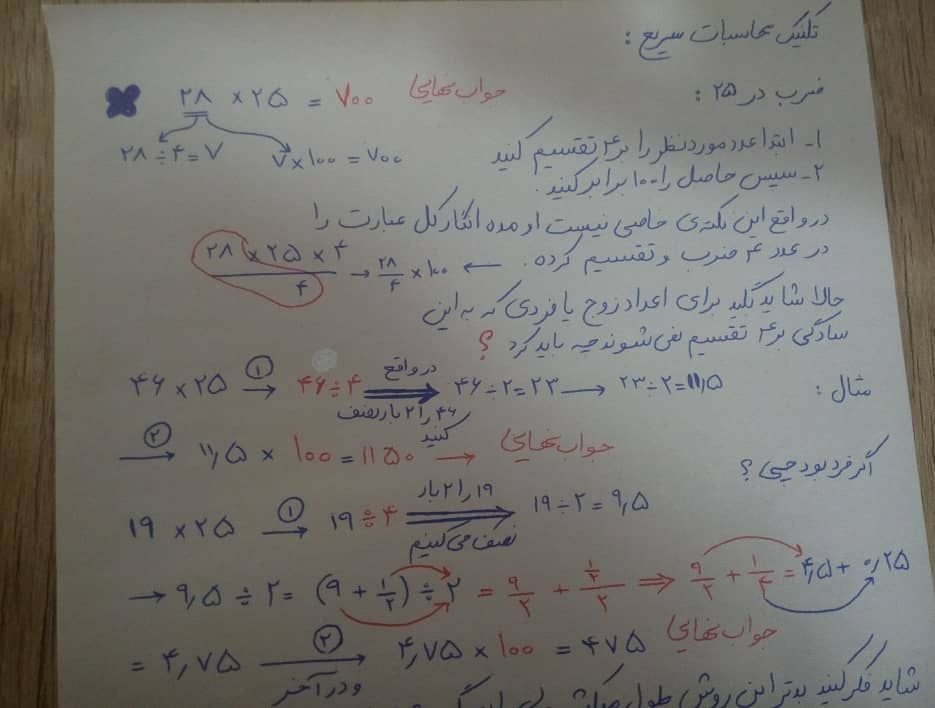 تکنیک محاسبات سریع :
ضرب در ۲۵ :
۲۸ × ۲۵ = ۷۰۰ جواب نهایی
۲۸ ÷ ۴ = ۷ ۷ × ۱۰۰ = ۷۰۰
۱- ابتدا عدد موردنظر را بر ۴ تقسیم کنید
۲- سپس حاصل را ۱۰۰ برابر کنید.
در واقع این نکته‌ی خاصی نیست اومده انگار کل عبارت را
در عدد ۴ ضرب و تقسیم کرده. ← ۲۸/۴ × ۱۰۰ → ۲۸ × ۲۵ × ۴ / ۴
حالا شاید بگید برای اعداد زوج یا فردی که به این
سادگی بر ۴ تقسیم نمی شوند چه باید کرد ؟
مثال :
۴۶ × ۲۵ →① ۴۶ ÷ ۴ ⇒ در واقع ۴۶ را ۲ بار نصف کنید ۴۶ ÷ ۲ = ۲۳ → ۲۳ ÷ ۲ = ۱۱٫۵
→② ۱۱٫۵ × ۱۰۰ = ۱۱۵۰ → جواب نهایی
اگر فرد بود چی ؟
۱۹ × ۲۵ →① ۱۹ ÷ ۴ ⇒ ۱۹ را ۲ بار نصف می کنیم ۱۹ ÷ ۲ = ۹٫۵
→ ۹٫۵ ÷ ۲ = (۹ + ۱/۲) ÷ ۲ = ۹/۲ + ۱/۲/۲ ⇒ ۹/۲ + ۱/۴ = ۴٫۵ + ۰٫۲۵
= ۴٫۷۵ →② و در آخر ۴٫۷۵ × ۱۰۰ = ۴۷۵ جواب نهایی
شاید فکر کنید بدتر این روش طول